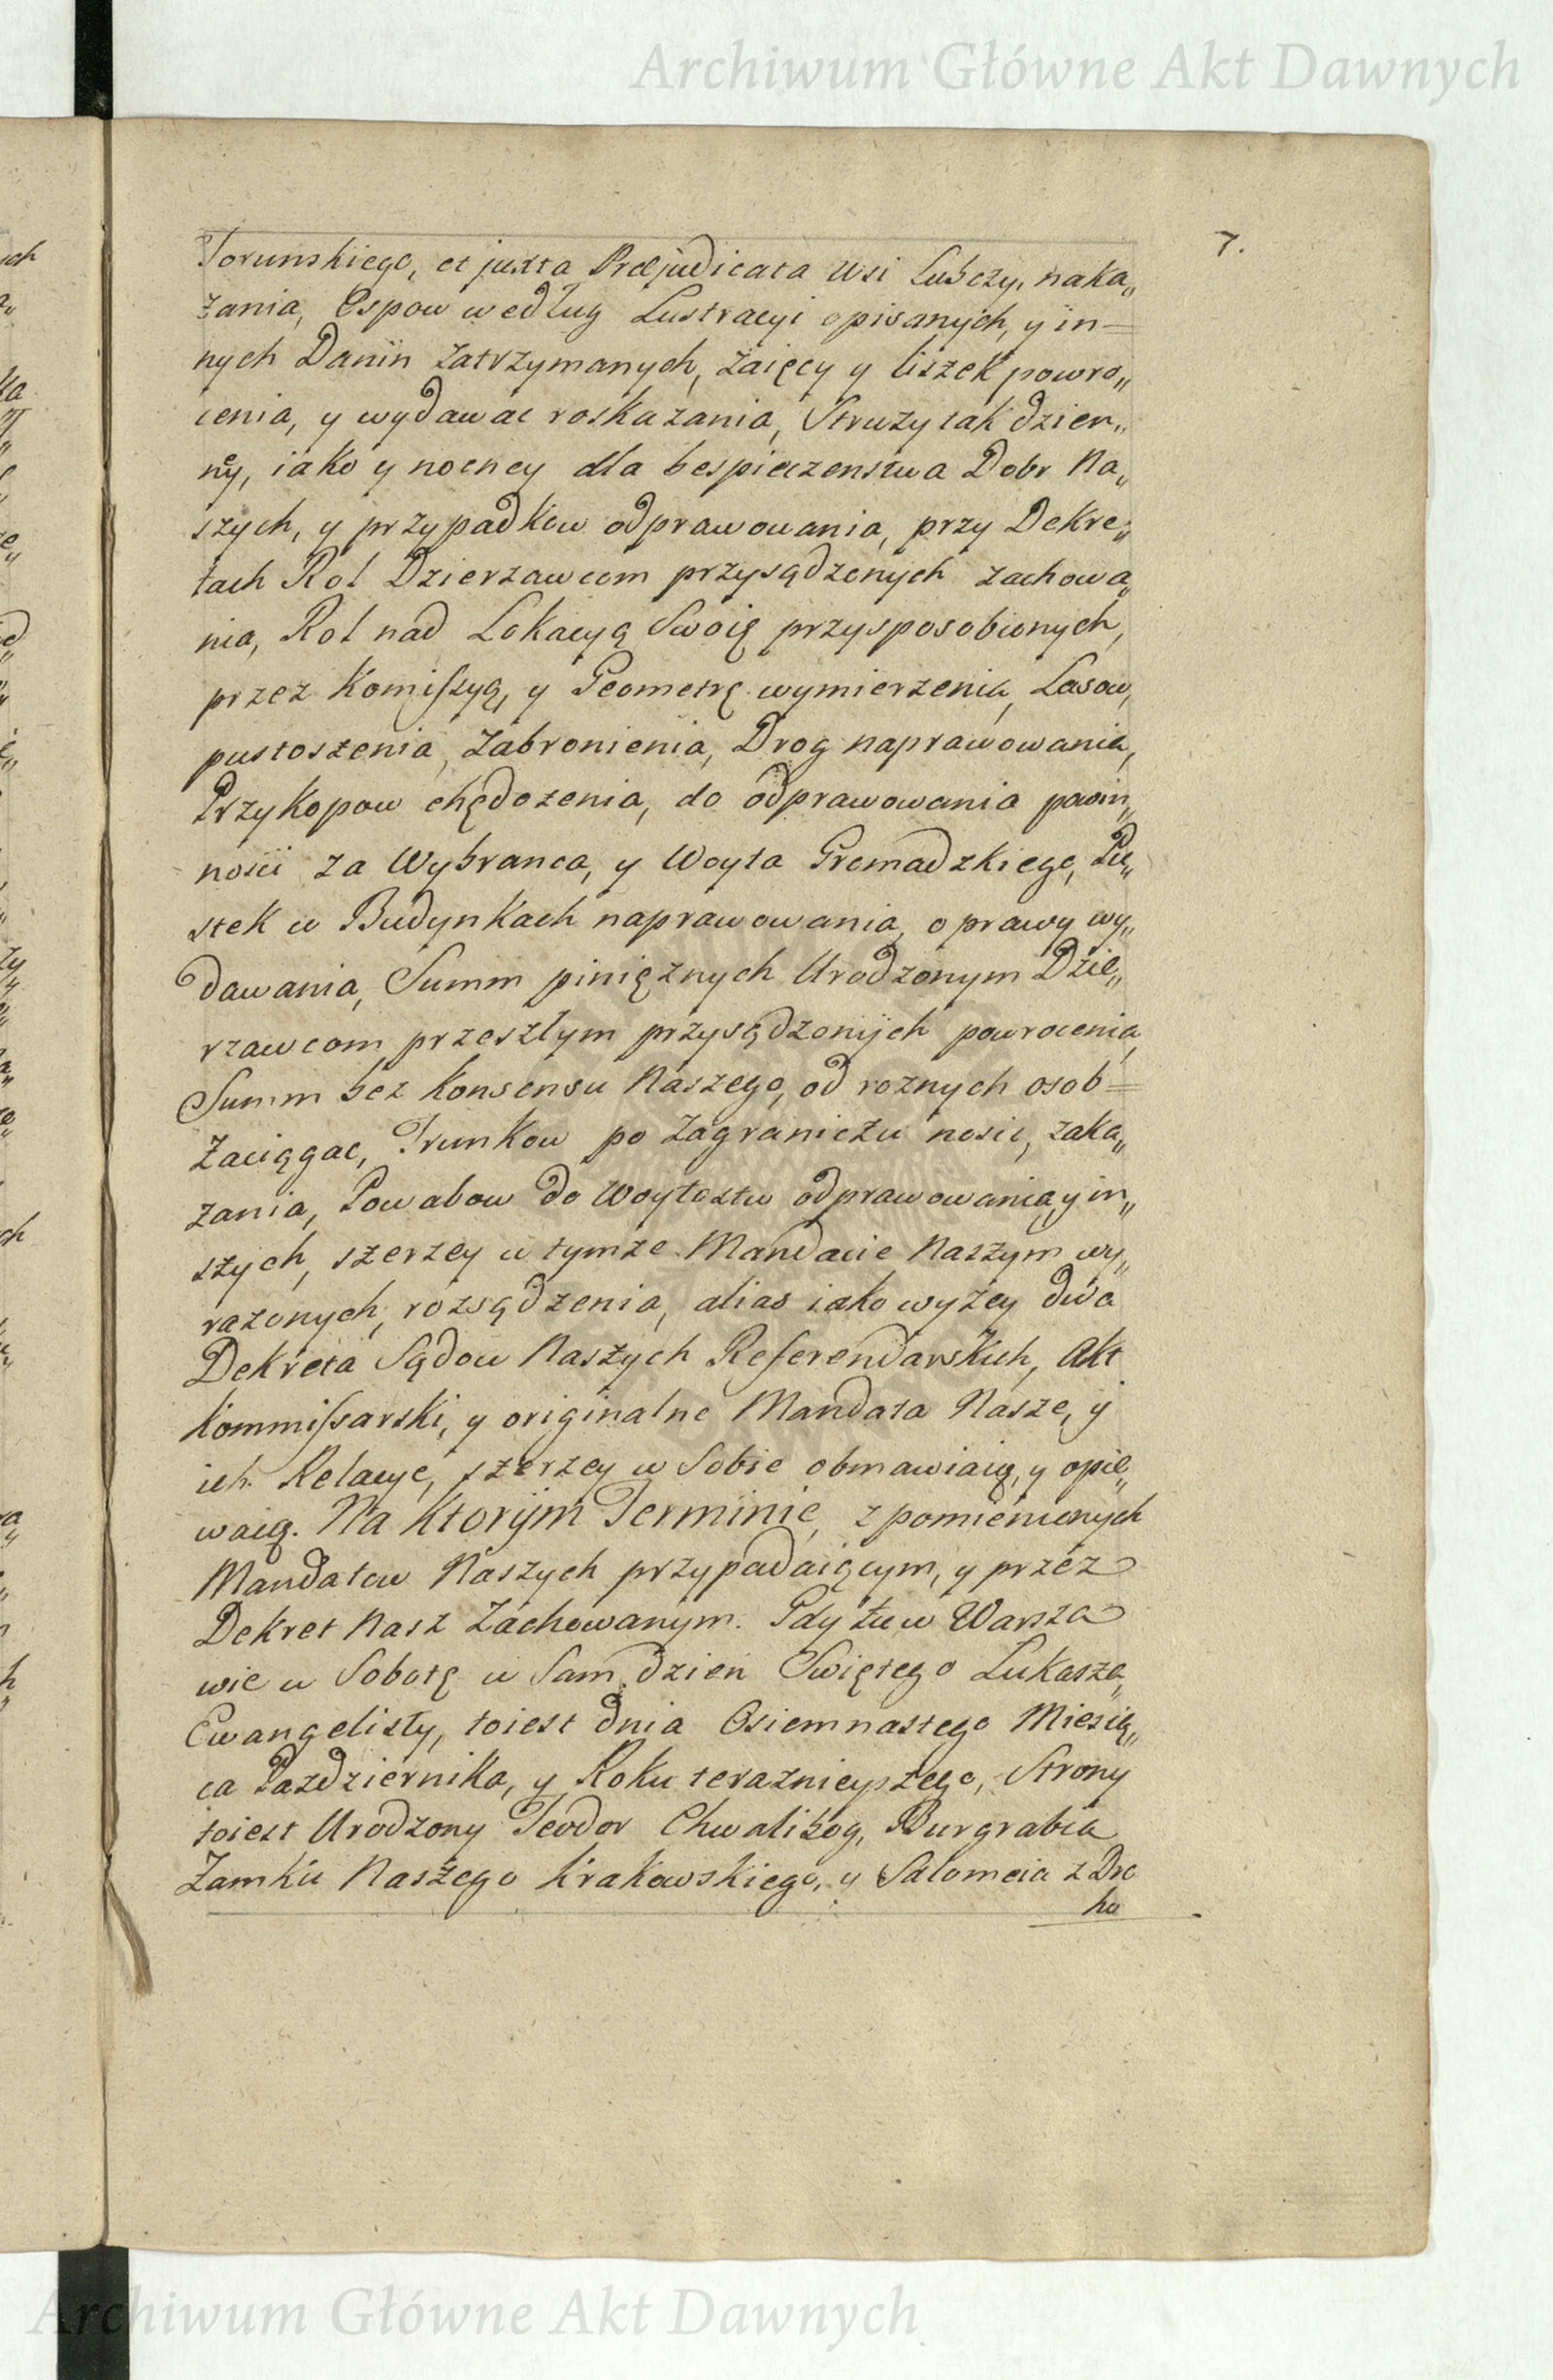 Archiwum Główne Akt Dawnych
7.
Torunskiego, et juxta Præjudicata Wsi Lubczy, naka„
zania, Ospow według Lustracyi opisanych, y in=
nych Danin zatrzymanych, zaięcy y liszek powro„
cenia, y wydawac roskazania, Struzy tak dzien„
ney, iako y nocney dla bespieczenstwa Dobr Na„
szych, y przypadkow odprawowania, przy Dekre„
tach Rol Dzierzawcom przysądzonych zachowa„
nia, Rol nad Lokacyą Swoię przysposobionych,
przez Komiſszyą, y Geometrę wymierzenia, Lasow,
pustoszenia, zabronienia, Drog naprawowania,
Przykopow chędozenia, do odprawowania powin„
nosci za Wybranca, y Woyta Gromadzkiego, Pu„
stek w Budynkach naprawowania, oprawy wy„
dawania, Summ pinięznych Urodzonym Dzie„
rzawcom przeszłym przysądzonych powrocenia,
Summ bez Konsensu Naszego, od roznych osob=
Zaciągac, Trunkow po Zagraniczu nosic, zaka„
zania, Powabow do Woytostw odprawowania, y in„
szych, szerzey w tymze Mandacie Naszym wy„
razonych, rozsądzenia, alias iako wyzey dwa
Dekreta Sądow Naszych Referendarskich, Akt
Kommiſsarski, y originalne Mandata Nasze, y
ich Relacye, szerzey w Sobie obmawiaią, y opie„
waią. Na Ktorym Terminie, z pomienionych
Mandatow Naszych przypadaiącym, y przez
Dekret Nasz Zachowanym. Gdy tu w Warsza
wie w Sobotę w Sam dzien Swiętego Lukasza,
Ewangelisty, toiest dnia Osiemnastego Miesią„
ca Pazdziernika, y Roku terazнieyszego, Strony
toiest Urodzony Teodor Chwalibog, Burgrabia
Zamku Naszego Krakowskiego, y Salomeia z Dro
ho
Archiwum Główne Akt Dawnych